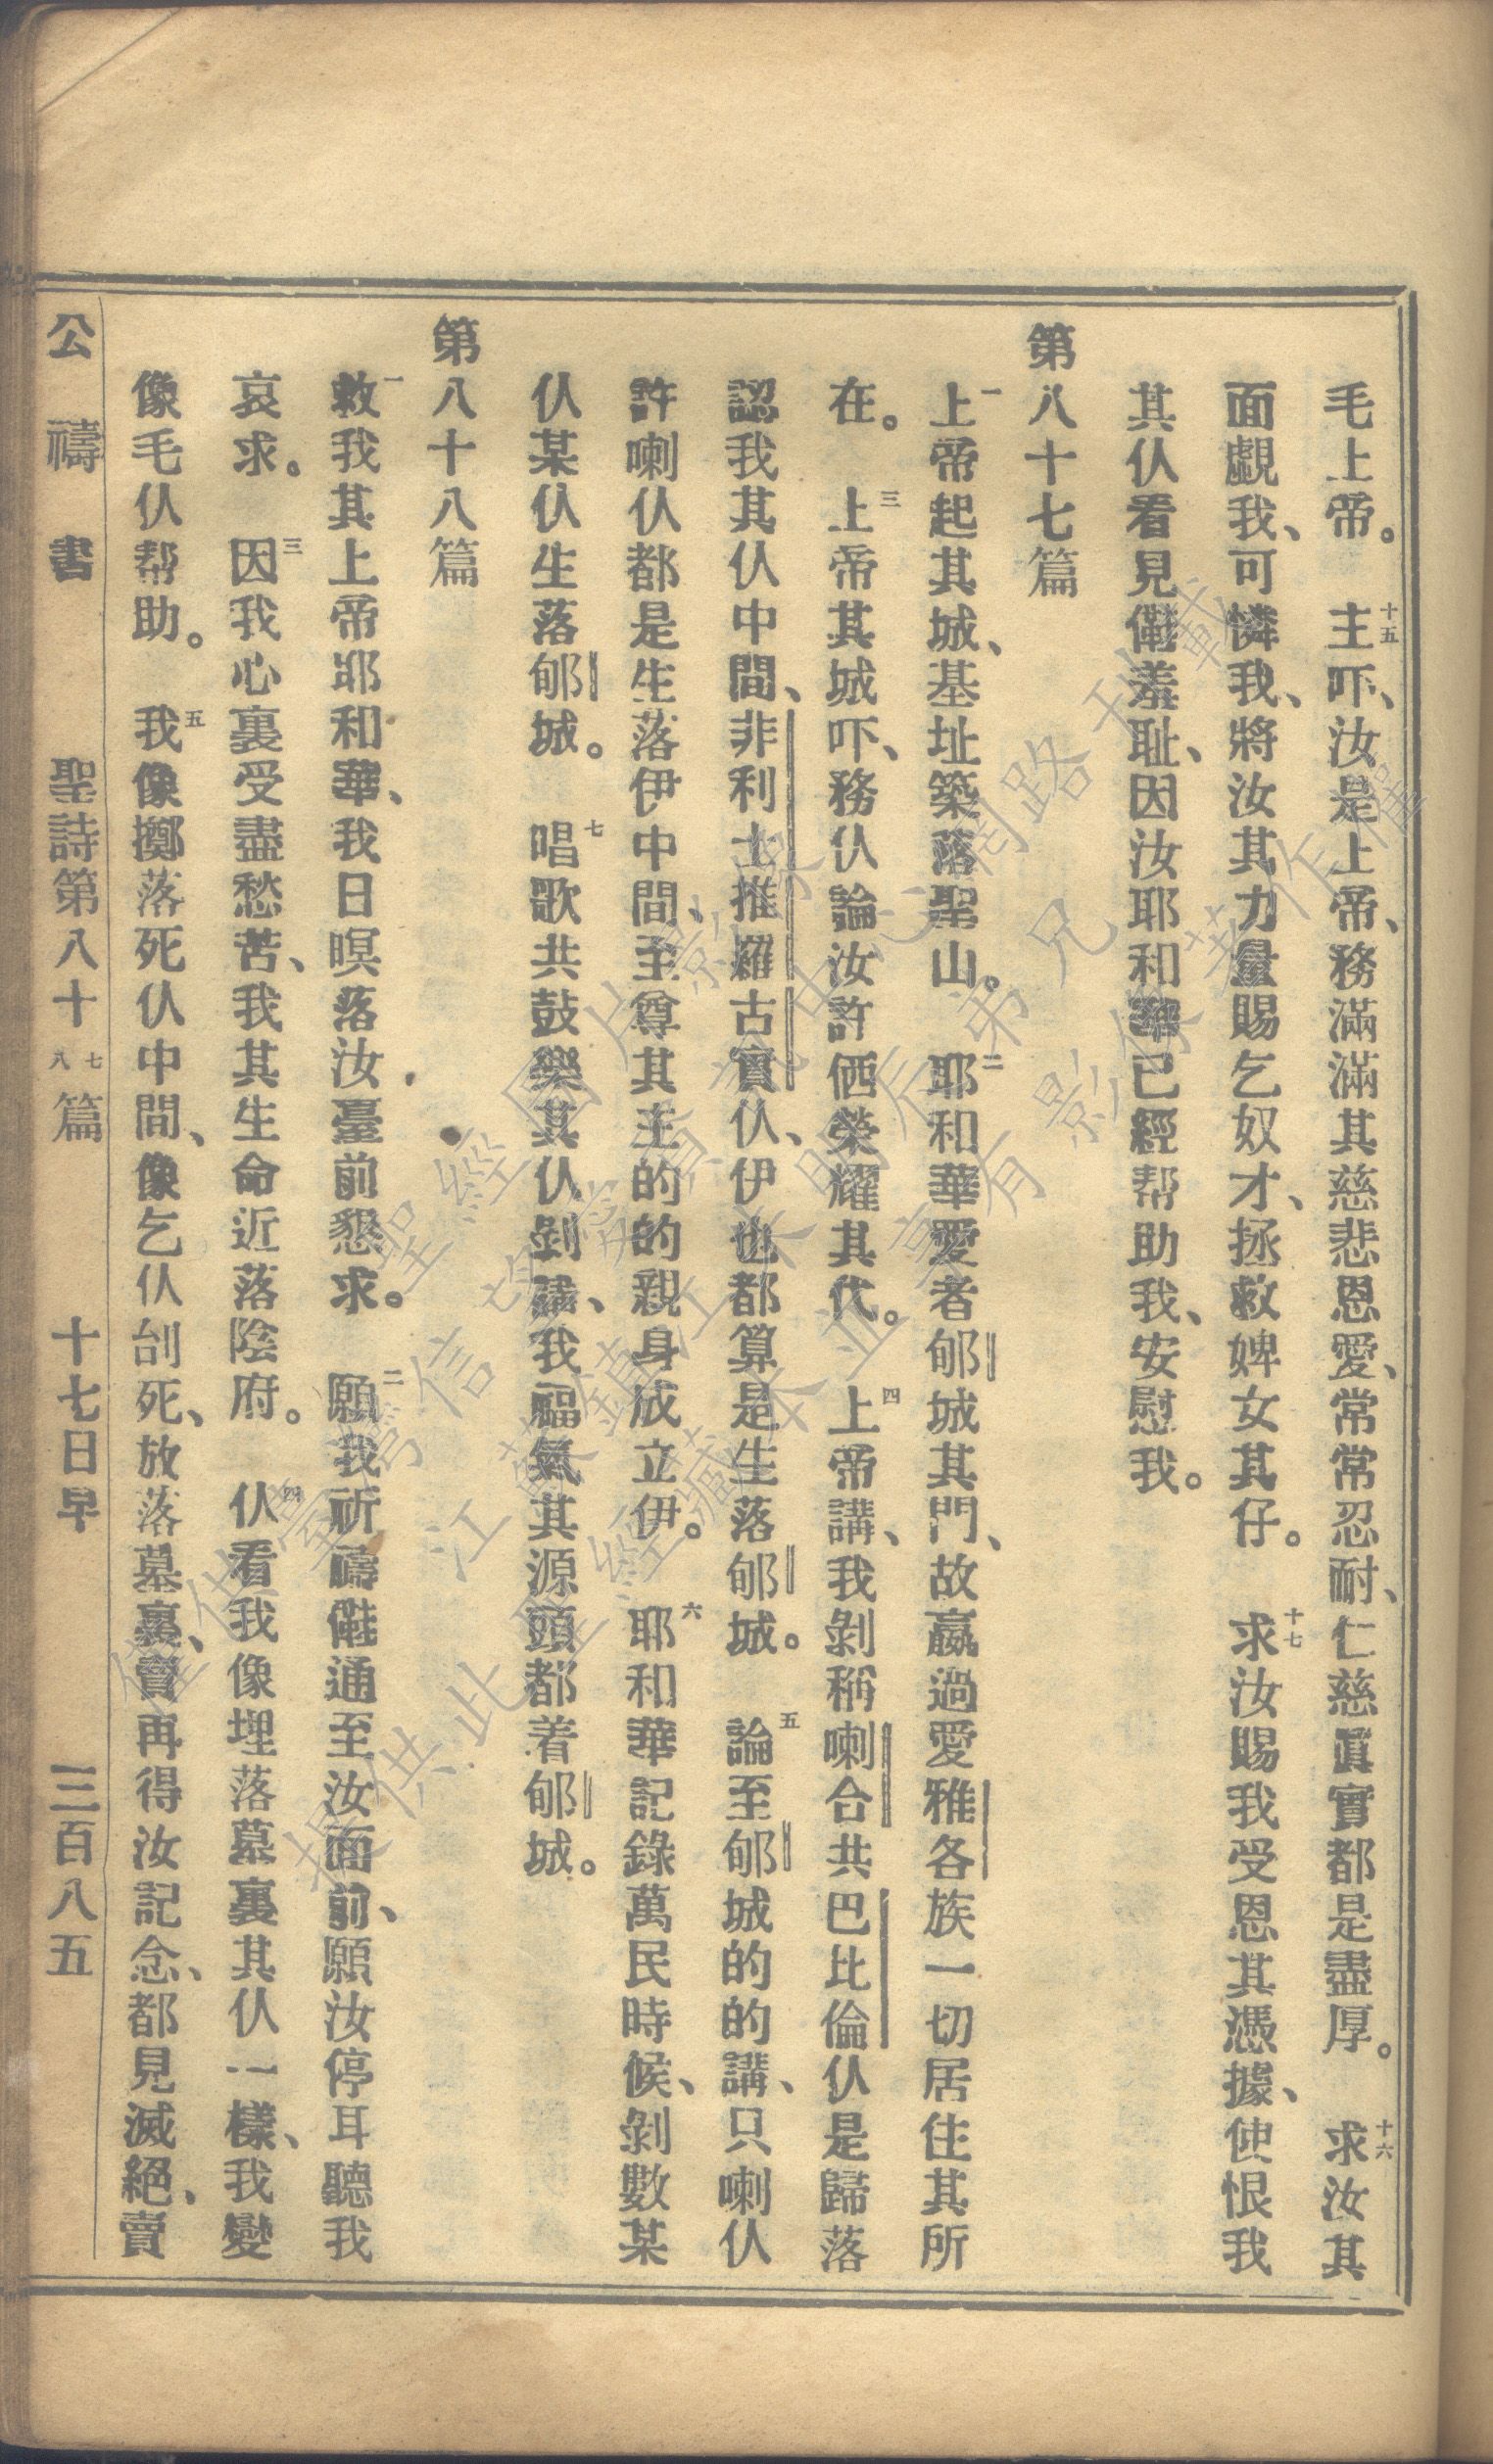 毛上帝。十五主吓、汝是上帝、務滿滿其慈悲恩愛、常常忍耐、仁慈眞實都是盡厚。十六求汝其
面覷我、可憐我、將汝其力量賜乞奴才、拯救婢女其仔。十七求汝賜我受恩其憑據、使恨我
其仈看見儺羞耻、因汝耶和華已經帮助我、安慰我。
第八十七篇
一上帝起其城、基址築落聖山。二耶和華愛者郇城其門、故嬴過愛雅各族一切居住其所
在。三上帝其城吓、務仈論汝許𠉞榮耀其代。四上帝講、我剝稱喇合共巴比倫仈是歸落
認我其仈中間、非利士推羅古實仈、伊也都算是生落郇城。五論至郇城的的講、只喇仈
許喇仈都是生落伊中間、至尊其主的的親身成立伊。六耶和華記錄萬民時候、剝數某
仈某仈生落郇城。七唱歌共鼓樂其仈剝講、我福氣其源頭都着郇城。
第八十八篇
一救我其上帝耶和華、我日暝落汝臺前懇求。二願我祈禱儺通至汝面前、願汝停耳聽我
哀求。三因我心裏受盡愁苦、我其生命近落陰府。四仈看我像埋落墓裏其仈一樣、我變
像毛仈帮助。五我像擲落死仈中間、像乞仈刣死、放落墓裏、賣再得汝記念、都見滅絕、賣
公禱書 聖詩第八十七八篇 十七日早 三百八五